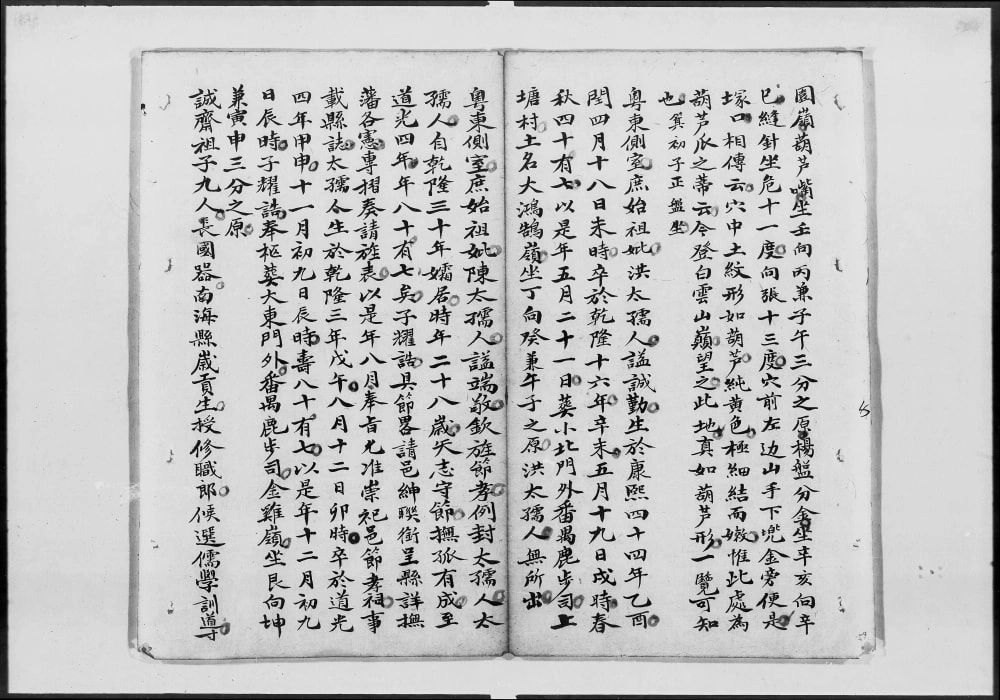 園嶺葫芦嘴坐壬向丙兼子午三分之原楊盤分金坐辛亥向辛
巳縫針坐危十一度向張十三度穴前左边山手下兜金旁便是
塚口相傳云穴中土紋形如葫芦純黄色極細結而嫩惟此處為
葫芦瓜之蒂云今登白雲山巔望之此地真如葫芦形一覽可知
也箕初子正盤坐
粤東側室庶始祖妣洪太孺人謚誠勤生於康熙四十四年乙酉
閏四月十八日未時卒於乾隆十六年辛未五月十九日戌時春
秋四十有七以是年五月二十一日葬小北門外番禺鹿步司上
塘村土名大鴻鵠嶺坐丁向癸兼午子之原洪太孺人無所出
粤東側室庶始祖妣陳太孺人謚端敬欽旌節孝例封太孺人太
孺人自乾隆三十年孀居時年二十八歲矢志守節撫孤有成至
道光四年年八十有七矣子耀誥具節畧請邑紳聯銜呈縣詳撫
藩各憲專摺奏請旌表以是年八月奉旨允准崇祀邑節孝祠事
載縣誌太孺人生於乾隆三年戊午八月十二日卯時卒於道光
四年甲申十一月初九日辰時壽八十有七以是年十二月初九
日辰時子耀誥奉柩葬大東門外番禺鹿步司金雞嶺坐艮向坤
兼寅申三分之原
誠齋祖子九人長國器南海縣歲貢生授修職郎候選儒學訓導